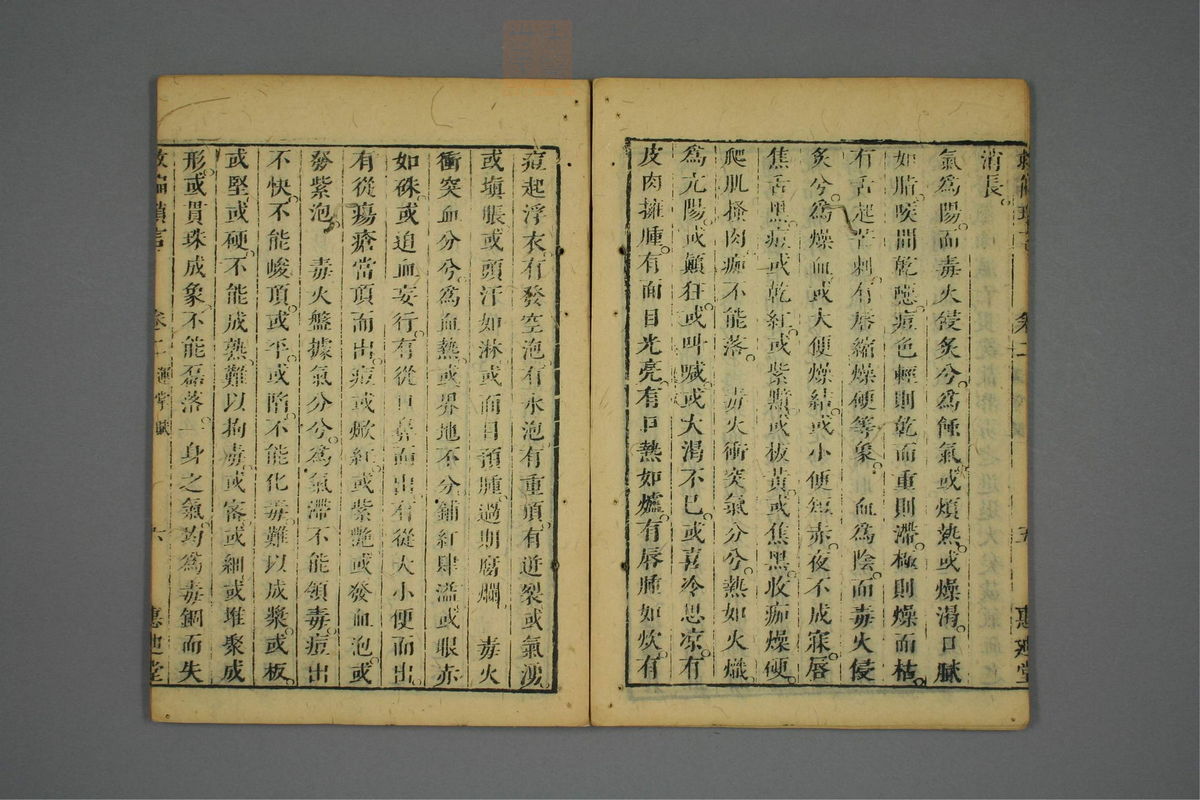 消長。
氣為陽。而毒火侵炙兮。為蝕氣。或煩熱。或燥渴。口膩
如脂。喉間乾噁。痘色輕則乾而重則滯。極則燥而枯。
有舌起芒刺。有唇縮燥硬等象。血為陰。而毒火侵
炙兮。為燥血。或大便燥結。或小便短赤。夜不成寐。唇
焦舌黑。痘或乾紅。或紫黯。或板黃。或焦黑。收痂燥硬。
爬肌搔肉。痂不能落。毒火衝突氣分兮。熱如火熾。
為亢陽。或顛狂。或叫喊。或大渴不已。或喜冷思凉。有
皮肉擁腫。有面目光亮。有口熱如爐。有唇腫如炊。有
五
惠迪堂
痘起浮衣。有發空泡。有水泡。有重頂。有迸裂。或氣湧。
或塡脹。或頭汗如淋。或面目預腫。過期腐爛。毒火
衝突血分兮。為血熱。或界地不分。鋪紅肆溢。或眼赤
如硃。或迫血妄行。有從口鼻而出。有從大小便而出。
有從瘍瘡當頂而出。痘或焮紅。或紫艷。或發血泡。或
發紫泡。毒火盤據氣分兮。為氣滯。不能領毒。痘出
不快。不能峻頂。或平或陷。不能化毒。難以成漿。或板。
或堅。或硬。不能成熟。難以拘毒。或密或細。或堆聚成
形。或貫珠成象。不能磊落。一身之氣。均為毒錮而失
救偏瑣言 卷二 運掌賦 六 惠迪堂